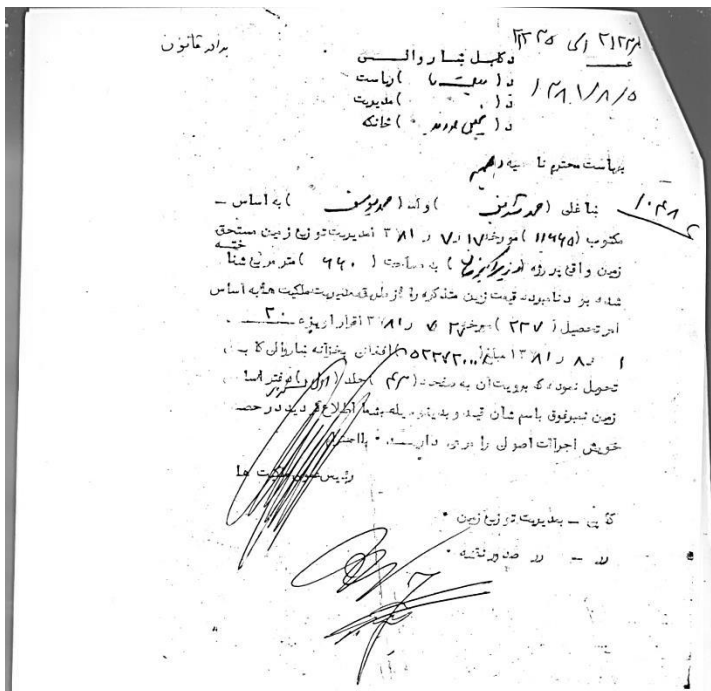 برادر قانون
۲۱۲۳۸ الی ۲۱۲۳۵
۱۳۸۱/۸/۵
د کابل ښاروالــــی
د ( ملکیت ها ) ریاست
د ( ) مدیریت
د ( ) څانګه
بریاست محترم ناحیه دهم
۱۰۴۸
ښاغلی ( محمد شریف ) ولد ( محمد یوسف ) به اساس ـ
مکتوب ( ۱۱۶۶۵ ) مورخه ۱۷ ر ۷ ر ۱۳۸۱ مدیریت توزیع زمین مستحق
زمین واقع پروژه ( وزیر اکبر خان ) به مساحت ( ۶۶۰ ) متر مربع شنا
خته
شده بر دنامبرده قیمت زمین متذکره را از طرف مدیریت ملکیت ها به اساس
امر تحصیل ( ۲۲۷ ) مورخه ۲۷ ر ۷ ر ۱۳۸۱ قرار آویزه ۲۰
۱ ر ۸ ر ۱۳۸۱ مبلغ ( ) افغانی بخزانه ښاروالی کابل
تحویل نموده که برویت آن به صفحه ( ۴۳ ) جلد ( اول ) دفتر اساس
زمین نمبر فوق باسم شان قید و بدینوسیله بشما اطلاع گردید در حصه
خویش اجراات اصولی را مرعی دارید. بااحترام
رئیس عمومی ملکیت ها
کاپی ـ بمدیریت توزیع زمین .
رر ـ رر صدور نقشه .